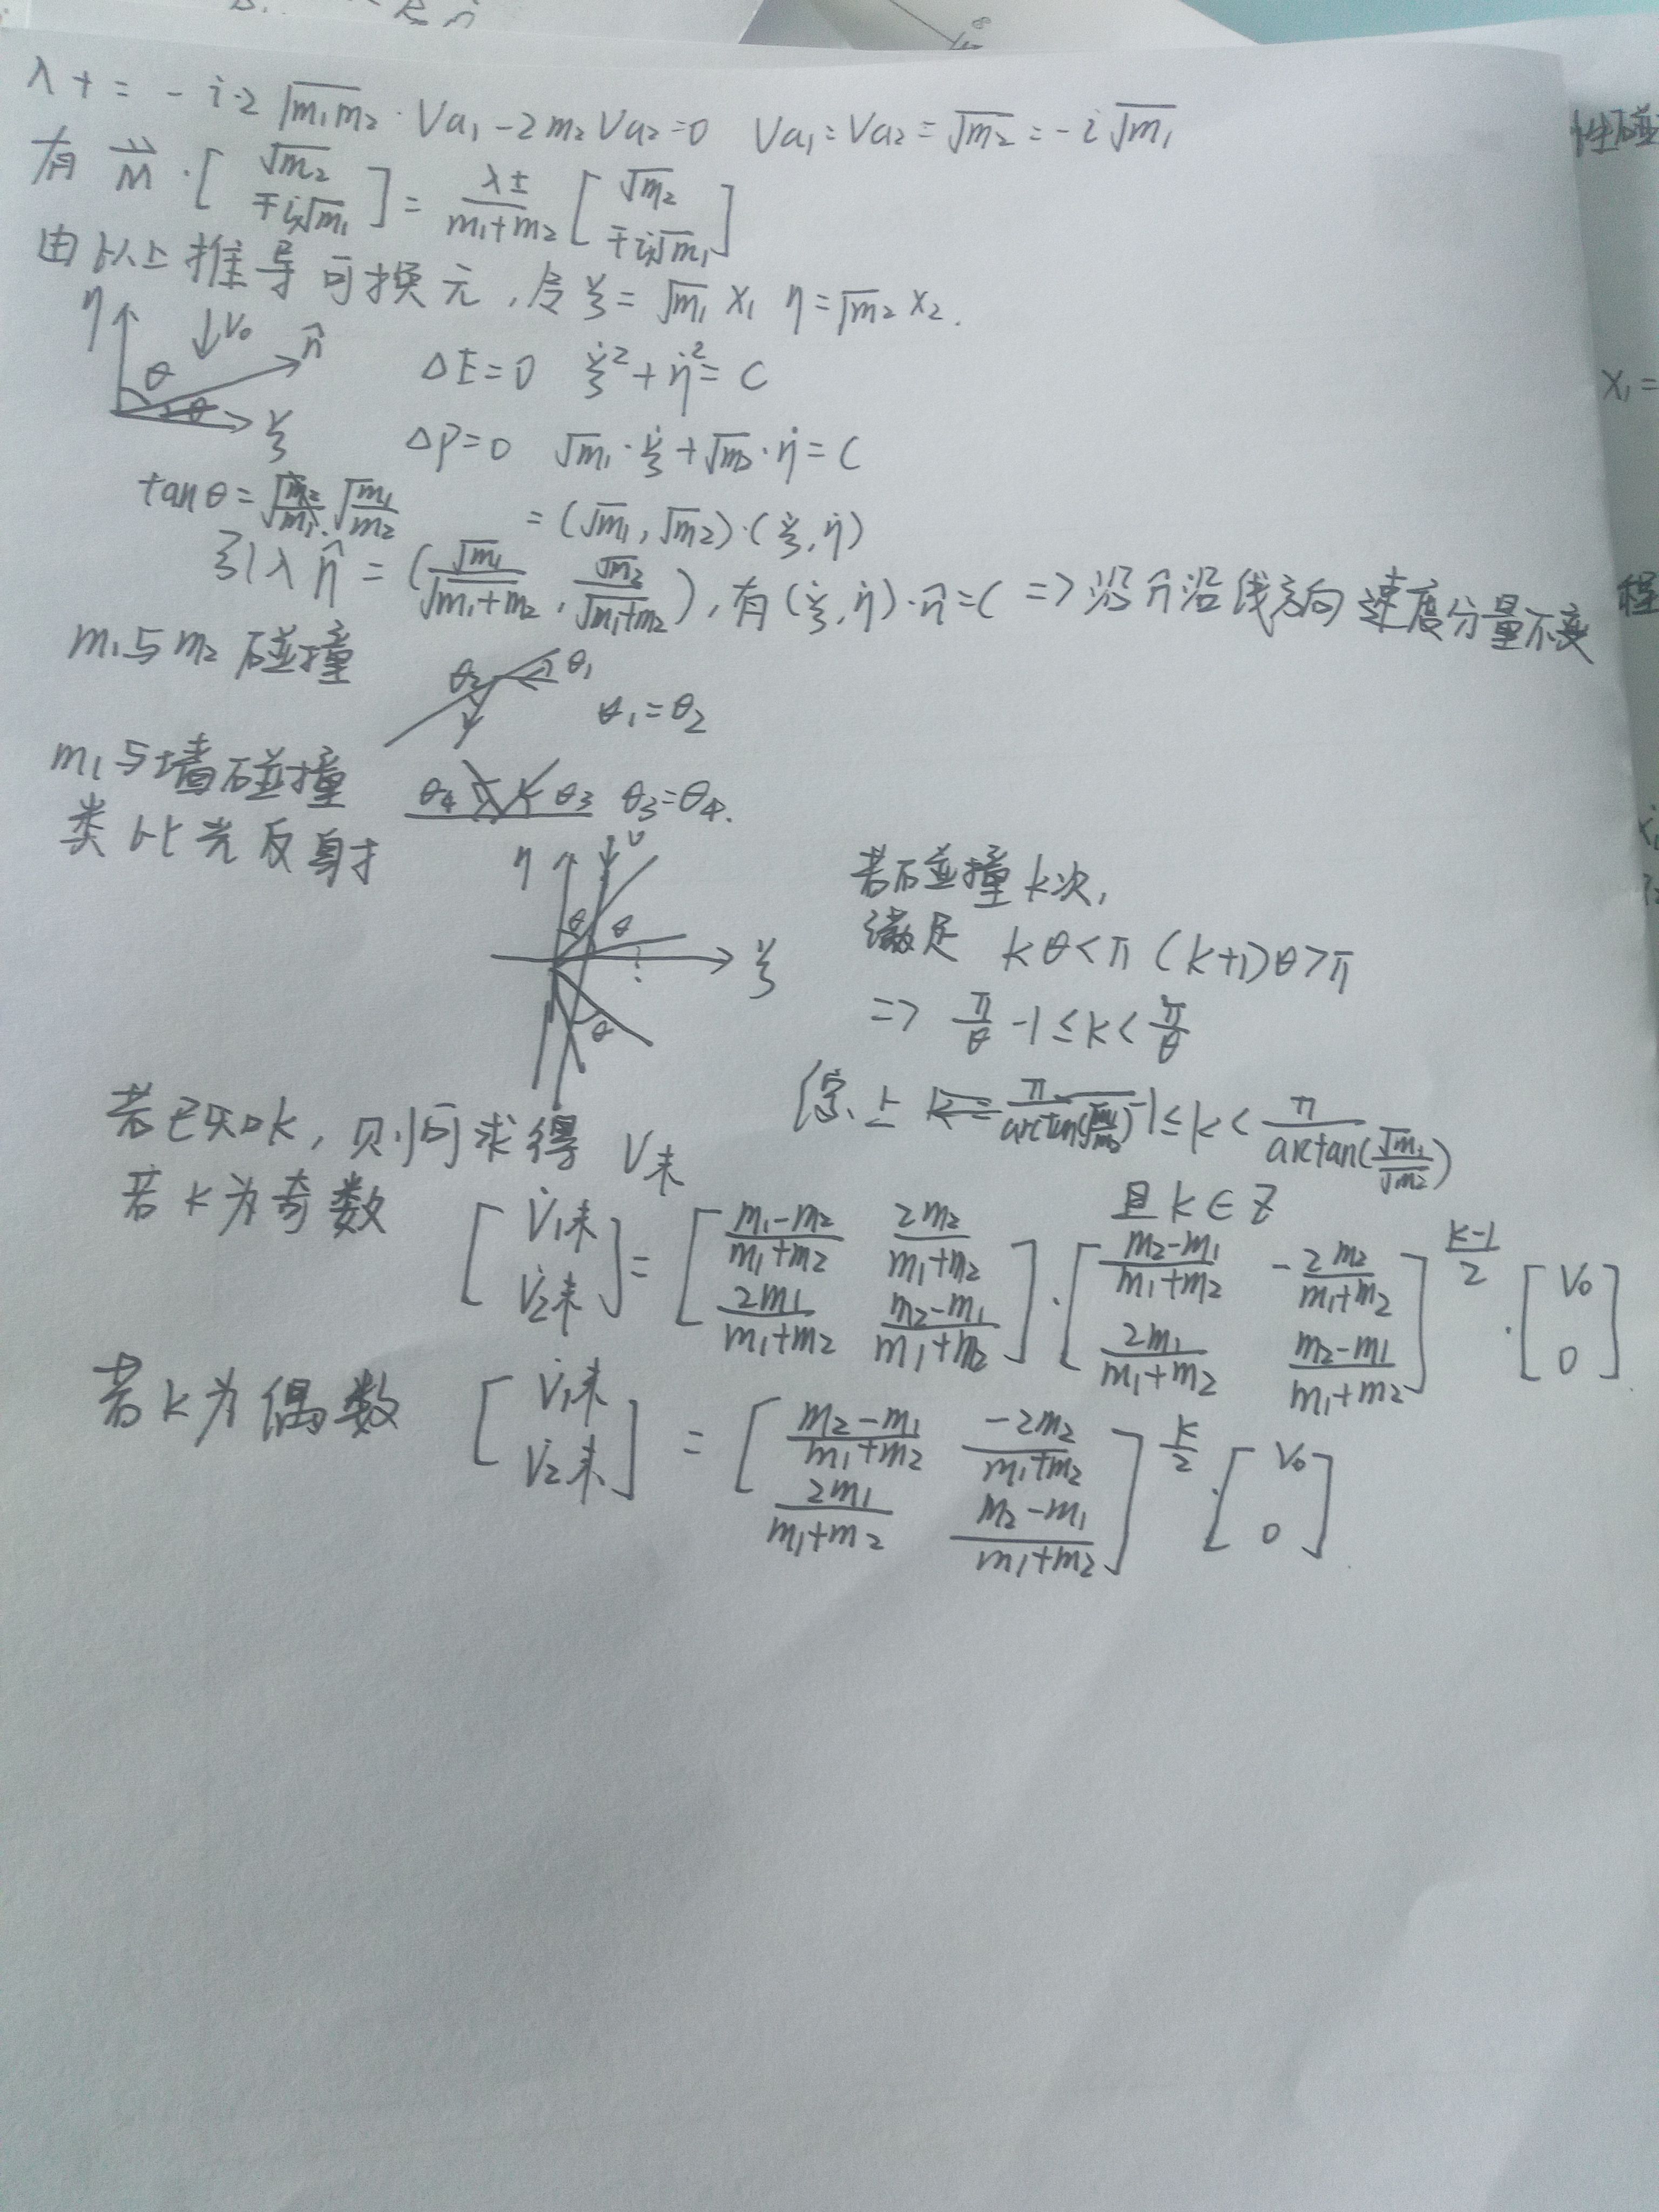 λ+ = -i·2√m₁m₂·Va₁-2m₂Va₂=0 Va₁=Va₂=√m₂=-i√m₁
有 M·[√m₂ ∓i√m₁] = λ±/(m₁+m₂) [√m₂ ∓i√m₁]
由以上推导可换元,令ξ=√m₁ x₁ η=√m₂ x₂.
η ↓v₀ n̂ θ θ ξ
ΔE=0 ξ̇²+η̇²=C
ΔP=0 √m₁·ξ̇+√m₂·η̇=C
tanθ=√m₁/m₂ =(√m₁,√m₂)·(ξ̇,η̇)
引入n̂=(√m₁/√m₁+m₂, √m₂/√m₁+m₂),有(ξ̇,η̇)·n̂=C => 沿n̂沿线方向速度分量不变
m₁与m₂碰撞 θ₂ θ₁ θ₁=θ₂
m₁与墙碰撞 θ₄ θ₃ θ₃=θ₄.
类比光反射
η v θ θ ξ θ
若碰撞k次,
满足 kθ<π (k+1)θ>π
=> π/θ -1≤k<π/θ
综上 π/arctan(√m₁/√m₂) -1≤k<π/arctan(√m₁/√m₂)
且k∈Z
若已知k,则可求得 V末
若k为奇数 [V̇₁末 V̇₂末] = [(m₁-m₂)/(m₁+m₂) 2m₂/(m₁+m₂) 2m₁/(m₁+m₂) (m₂-m₁)/(m₁+m₂)]·[(m₂-m₁)/(m₁+m₂) -2m₂/(m₁+m₂) 2m₁/(m₁+m₂) (m₂-m₁)/(m₁+m₂)]^((k-1)/2)·[V₀ 0]
若k为偶数 [V̇₁末 V̇₂末] = [(m₂-m₁)/(m₁+m₂) -2m₂/(m₁+m₂) 2m₁/(m₁+m₂) (m₂-m₁)/(m₁+m₂)]^(k/2)·[V₀ 0]
性碰
x₁=
程